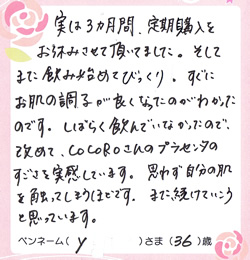 実は3ヵ月間、定期購入を
お休みさせて頂いてました。そして
また飲み始めてびっくり。すぐに
お肌の調子が良くなったのがわかった
のです。しばらく飲んでいなかったので、
改めて、COCOROさんのプラセンタの
すごさを実感しています。思わず自分の肌
を触ってしまうほどです。また、続けていこう
と思っています。
ペンネーム( y )さま(36)歳